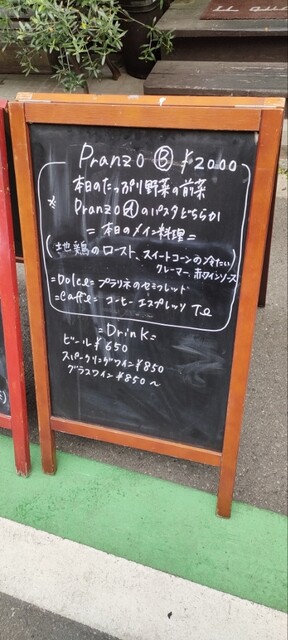 Pranzo Ⓑ ¥2000
本日のたっぷり野菜の前菜
※ PranzoⒶのパスタどちらか
= 本日のメイン料理 =
(地鶏のロースト、スイートコーンの冷たい
クレーマー、赤ワインソース)
=Dolce= プラリネのセミフレッド
=Caffe= コーヒー エスプレッソ Te
=Drink=
ビール ¥650
スパークリングワイン ¥850
グラスワイン ¥850~